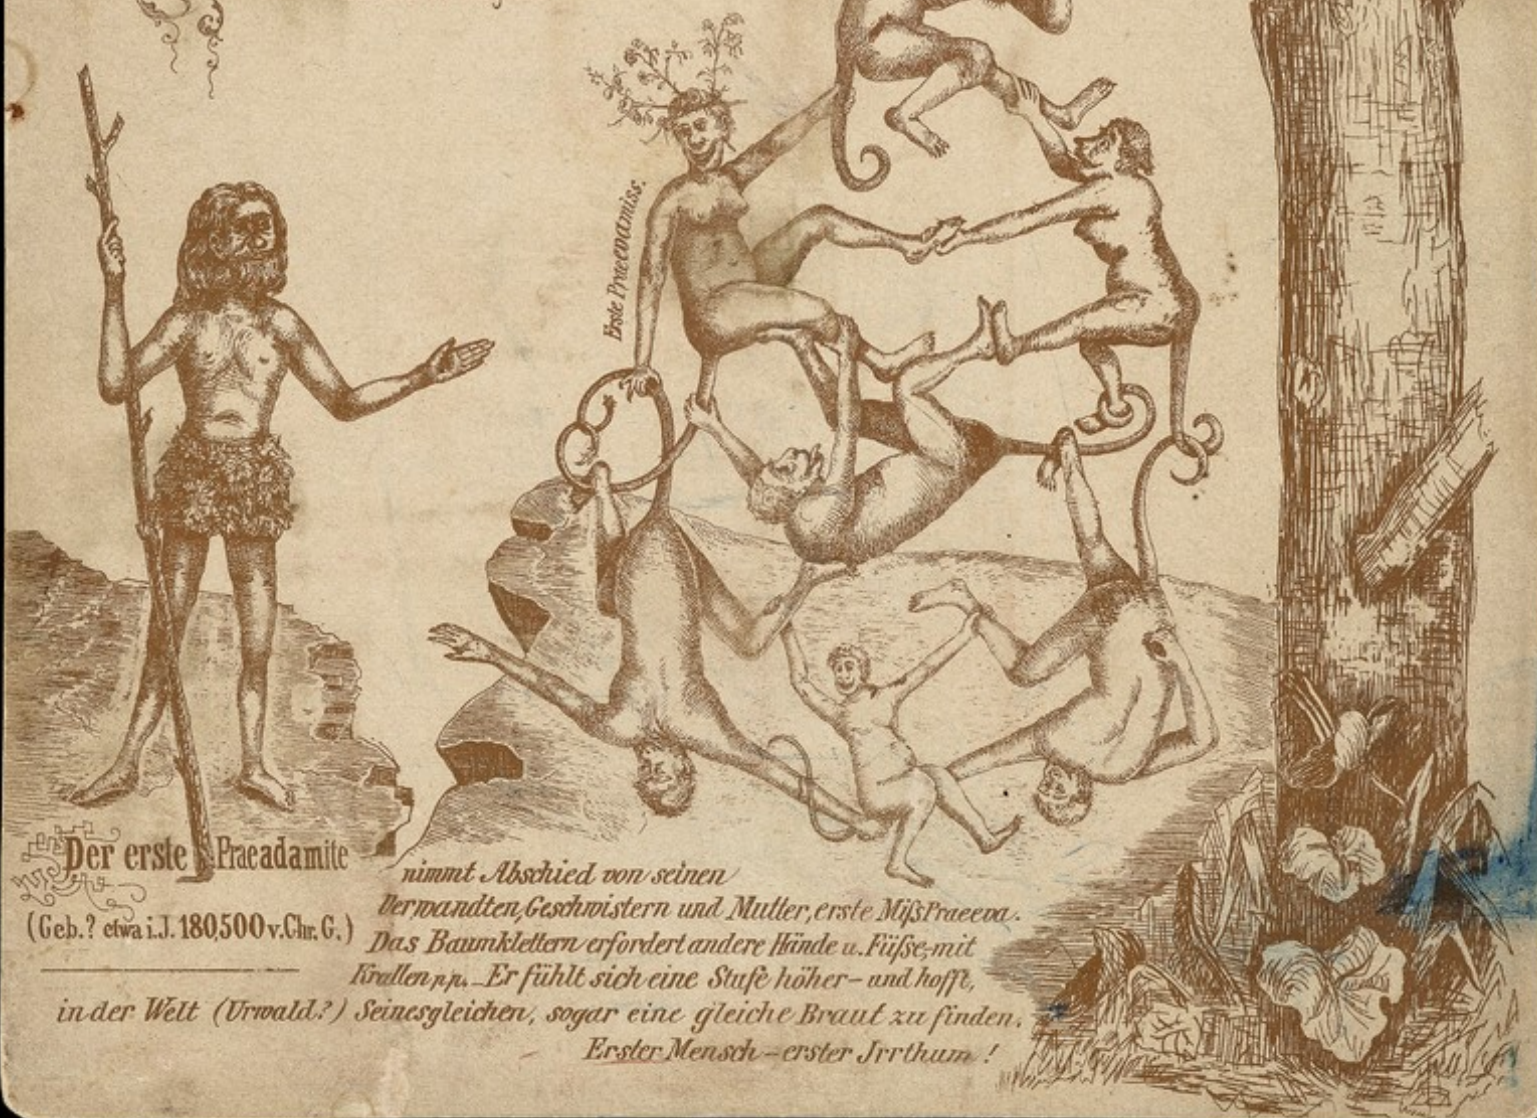 Erste Praeevamiss.
Der erste Praeadamite
(Geb.? etwa i.J. 180,500 v. Chr. G.)
nimmt Abschied von seinen
Verwandten, Geschwistern und Mutter, erste Miſs Praeeva.
Das Baumklettern erfordert andere Hände u. Füſse, mit
Krallen p.p. – Er fühlt sich eine Stufe höher – und hofft,
in der Welt (Urwald?) Seinesgleichen, sogar eine gleiche Braut zu finden.
Erster Mensch – erster Jrrthum!